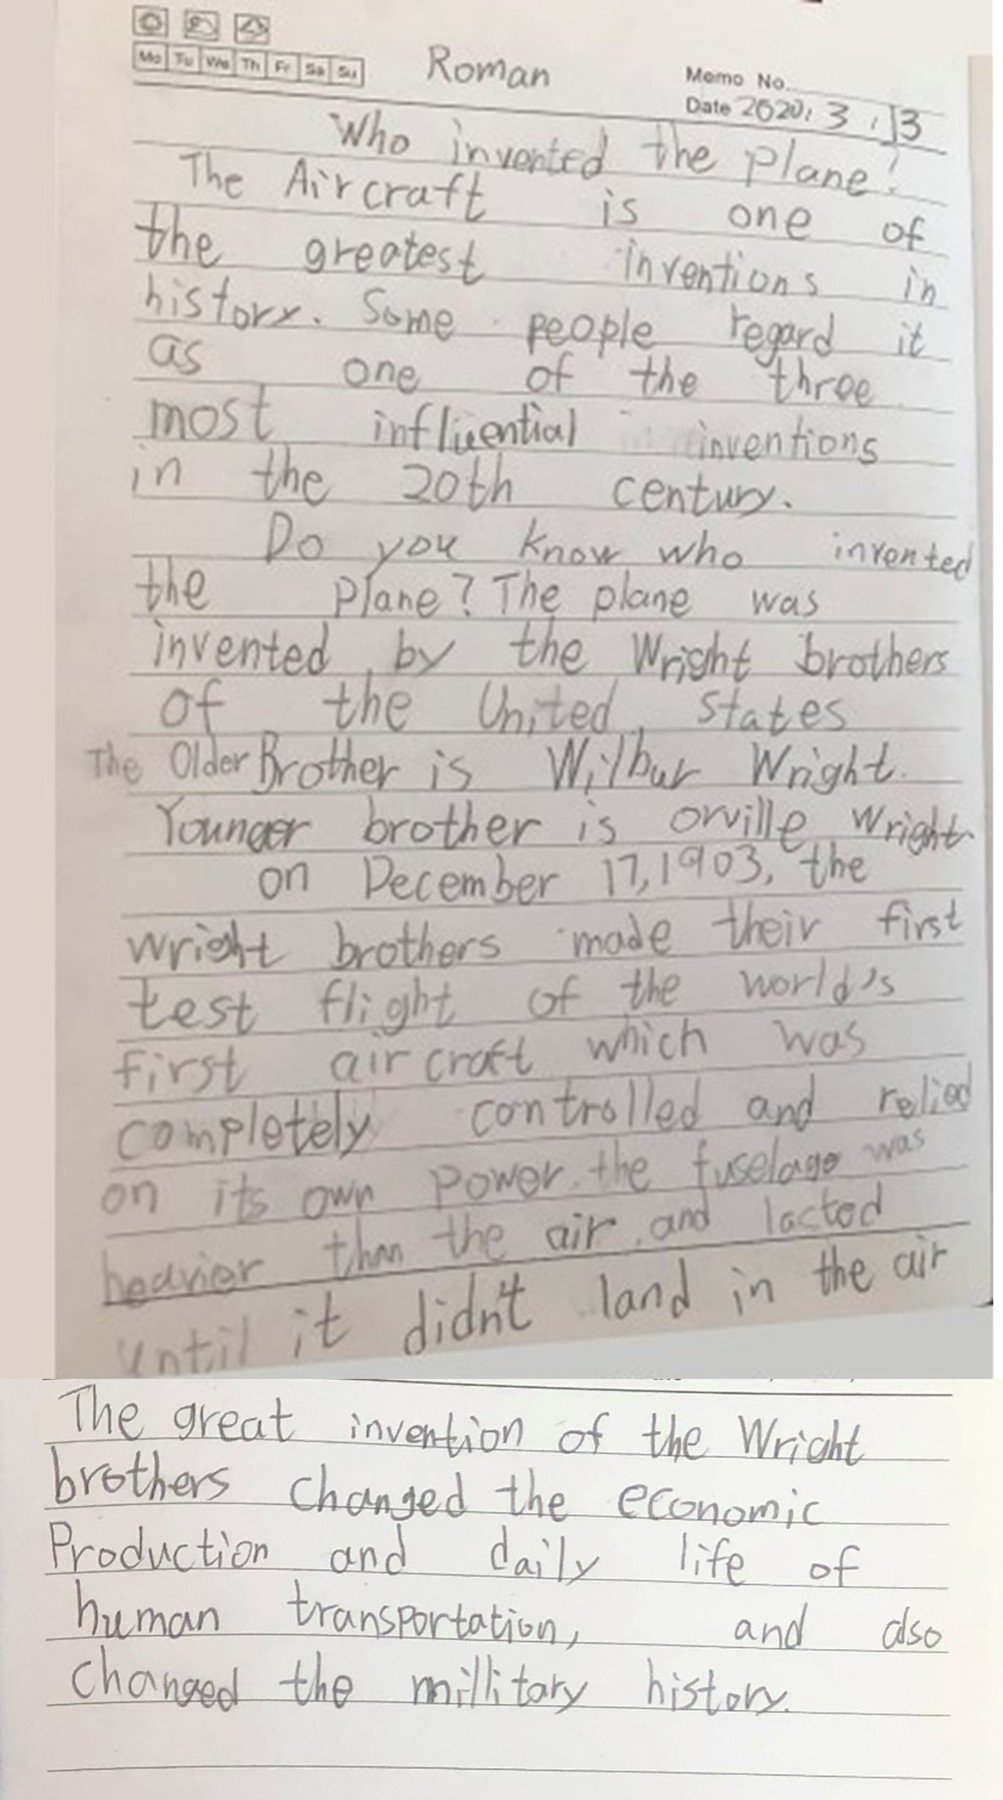 Mo Tu We Th Fr Sa Su
Roman
Memo No.
Date 2020, 3, 13
Who invented the plane?
The Aircraft is one of
the greatest inventions in
history. Some people regard it
as one of the three
most influential inventions
in the 20th century.
Do you know who invented
the Plane? The plane was
invented by the Wright brothers
of the United States
The Older Brother is Wilbur Wright.
Younger brother is orville Wright
on December 17, 1903, the
wright brothers made their first
test flight of the world's
first aircraft which was
completely controlled and relied
on its own power. the fuselage was
heavier than the air. and lacted
until it didn't land in the air
The great invention of the Wright
brothers changed the economic
Production and daily life of
human transportation, and also
changed the millitary history.